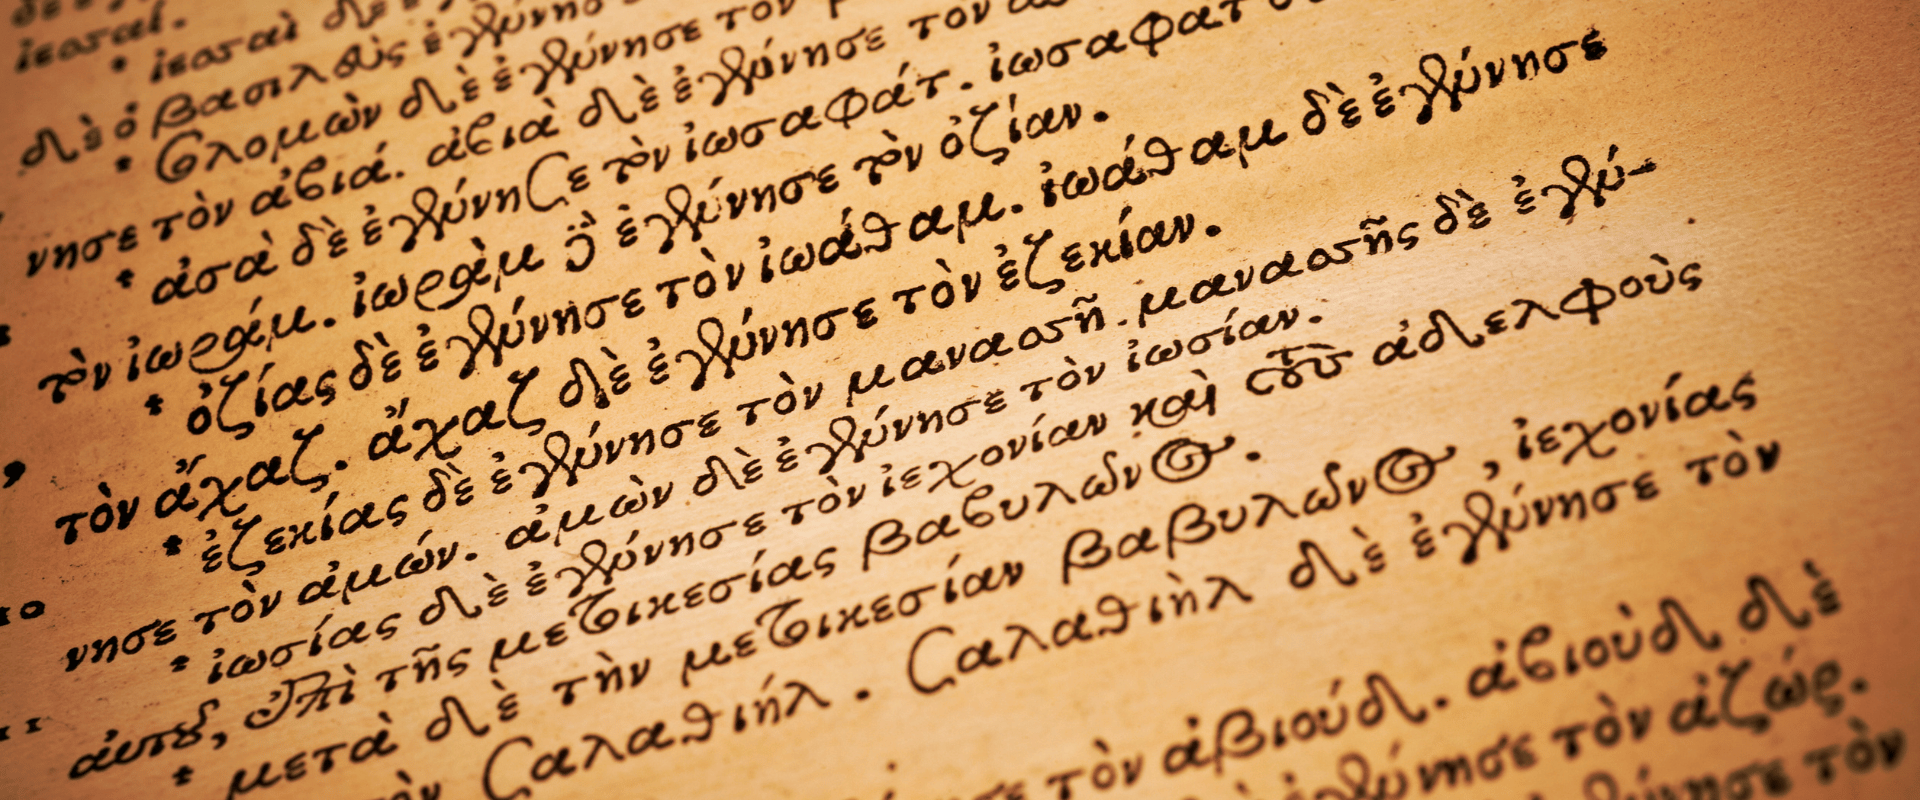 ἰεσσαί.
* ἰεσσαὶ
δὲ ὁ βασιλεὺς ἐγέννησε
* Σολομὼν δὲ ἐγέννησε τὸν
νησε τὸν ἀβιά. ἀβιὰ δὲ ἐγέννησε τὸν
* ἀσὰ δὲ ἐγέννησε τὸν ἰωσαφάτ. ἰωσαφὰτ
τὸν ἰωράμ. ἰωρὰμ δὲ ἐγέννησε τὸν ὀζίαν.
* ὀζίας δὲ ἐγέννησε τὸν ἰωάθαμ. ἰωάθαμ δὲ ἐγέννησε
τὸν ἄχαζ. ἄχαζ δὲ ἐγέννησε τὸν ἐζεκίαν.
* ἐζεκίας δὲ ἐγέννησε τὸν μανασσῆ. μανασσῆς δὲ ἐγέν-
νησε τὸν ἀμών. ἀμὼν δὲ ἐγέννησε τὸν ἰωσίαν.
* ἰωσίας δὲ ἐγέννησε τὸν ἰεχονίαν καὶ τοὺς ἀδελφοὺς
αὐτοῦ, ἐπὶ τῆς μετοικεσίας βαβυλῶνος.
* μετὰ δὲ τὴν μετοικεσίαν βαβυλῶνος, ἰεχονίας
τὸν Σαλαθιήλ. Σαλαθιὴλ δὲ ἐγέννησε τὸν
τὸν ἀβιούδ. ἀβιοὺδ δὲ
ἐγέννησε τὸν ἀζώρ.
ἐγέννησε τὸν